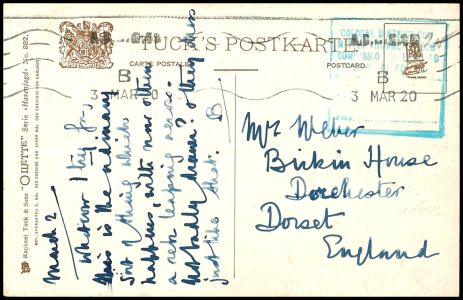 TUCK'S POSTKARTE.
CARTE POSTALE
POSTCARD.
B
3 MAR 20
B
3 MAR 20
Raphael Tuck & Sons' "OILETTE" Serie „Hasenjagd" No. 882.
March 2
Whatever I try for,
this is the ordinary
sort of thing which
happens, with now & then
a deer leaping across.
Not badly drawn? & they run
just like that. B
Mrs Weber
Birkin House
Dorchester
Dorset
England